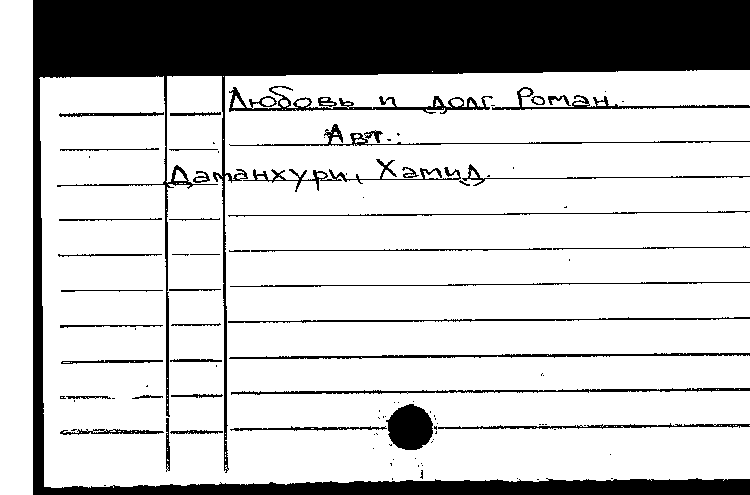 Любовь и долг. Роман.
Авт.:
Даманхури, Хамид.